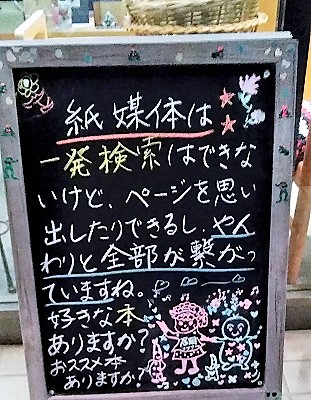 紙媒体は
一発検索はできな
いけど、ページを思い
出したりできるし、やん
わりと全部が繋がっ
ていますね。
好きな本
ありますか?
おススメ本
ありますか?